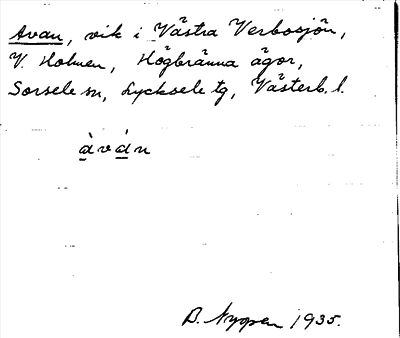 Avan, vik i Västra Verbosjön,
V. Holmen, Högbränna ägor,
Sorsele sn, Lycksele tg, Västerb. l.
àván
B. Nygren 1935.